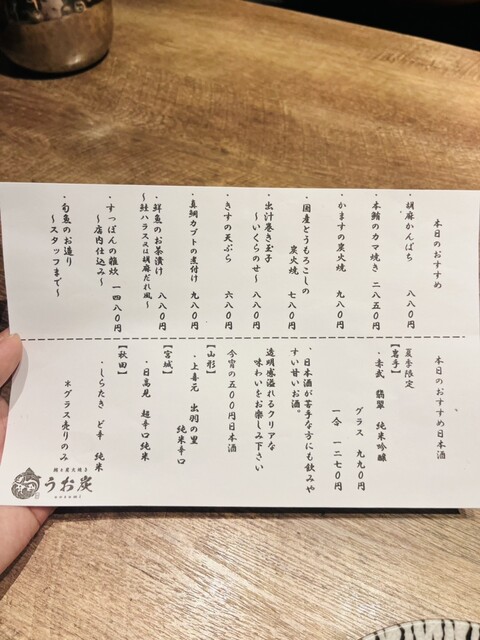 本日のおすすめ
・胡麻かんぱち　八八〇円
・本鮪のカマ焼き　二八五〇円
・かますの炭火焼　九八〇円
・国産とうもろこしの
炭火焼　七八〇円
・出汁巻き玉子
～いくらのせ～　八八〇円
・きすの天ぷら　六八〇円
・真鯛カブトの煮付け　九八〇円
・鮮魚のお茶漬け　八八〇円
～鮭ハラス又は胡麻だれ風～
・すっぽんの雑炊　一四八〇円
～店内仕込み～
・旬魚のお造り
～スタッフまで～
本日のおすすめ日本酒
夏季限定
【岩手】
・赤武　翡翠　純米吟醸
グラス　九九〇円
一合　一二七〇円
・日本酒が苦手な方にも飲みや
すい甘いお酒。
透明感溢れるクリアな
味わいをお楽しみ下さい
今宵の五〇〇円日本酒
【山形】
・上喜元　出羽の里
純米辛口
【宮城】
・日高見　超辛口純米
【秋田】
・しらたき　ど辛　純米
＊グラス売りのみ
うお炭
uosumi